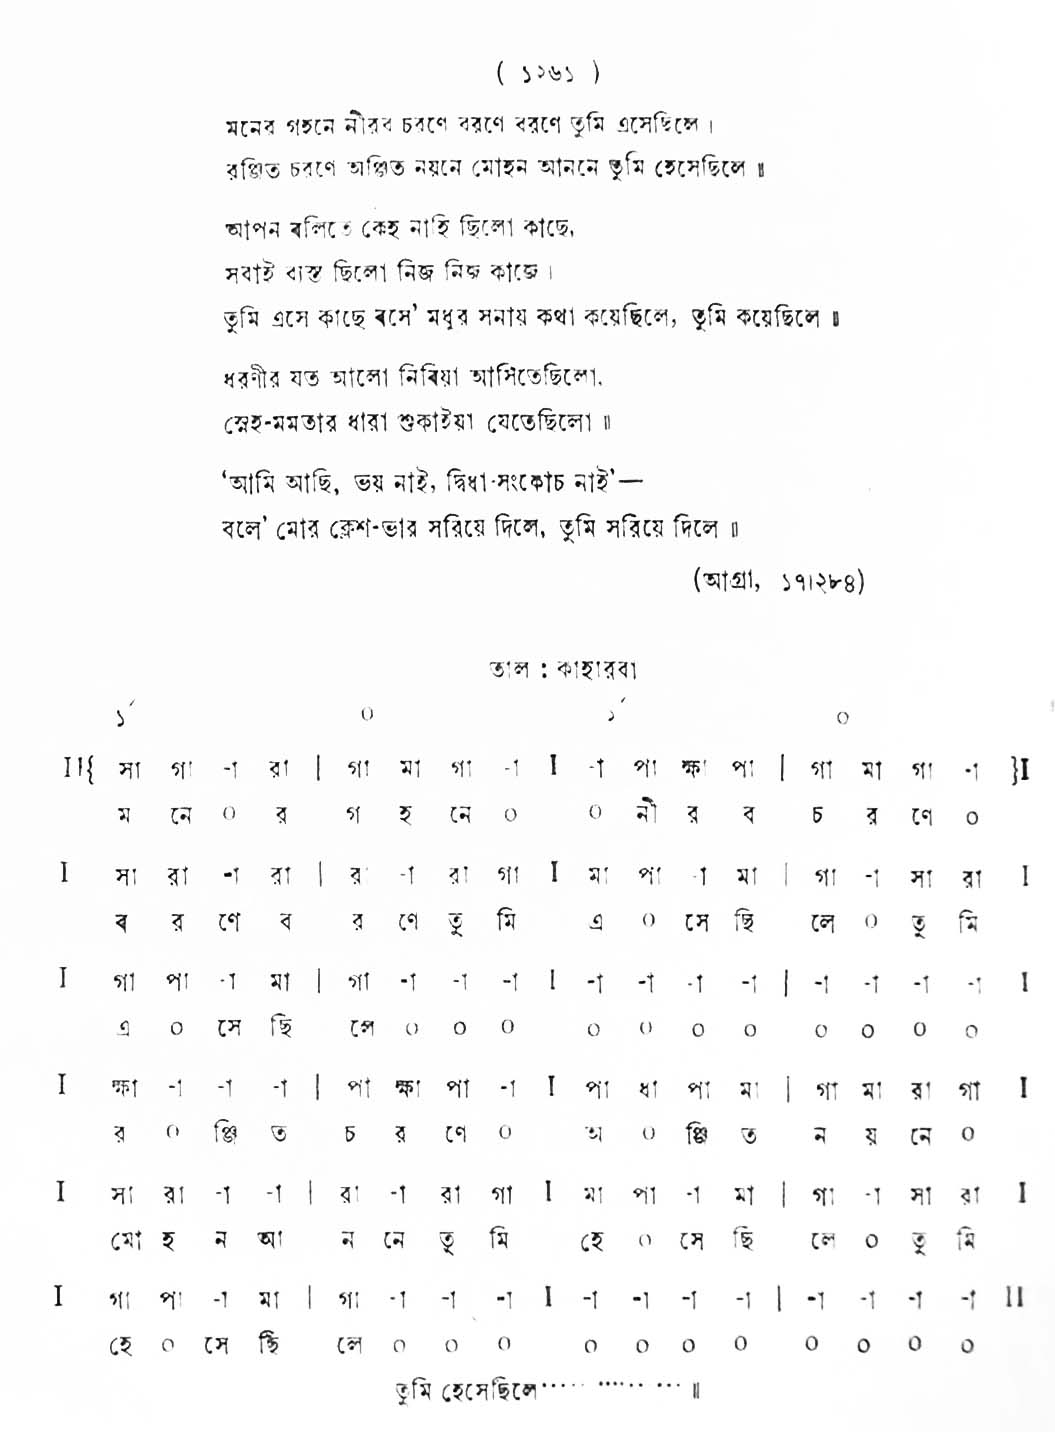 ( ১২৬১ )
মনের গহনে নীরব চরণে বরণে বরণে তুমি এসেছিলে ।
রঞ্জিত চরণে অঞ্জিত নয়নে মোহন আননে তুমি হেসেছিলে ॥
আপন বলিতে কেহ নাহি ছিলো কাছে,
সবাই ব্যস্ত ছিলো নিজ নিজ কাজে ।
তুমি এসে কাছে বসে’ মধুর সনায় কথা কয়েছিলে, তুমি কয়েছিলে ॥
ধরণীর যত আলো নিবিয়া আসিতেছিলো,
স্নেহ-মমতার ধারা শুকাইয়া যেতেছিলো ॥
‘আমি আছি, ভয় নাই, দ্বিধা-সংকোচ নাই’—
বলে’ মোর ক্লেশ-ভার সরিয়ে দিলে, তুমি সরিয়ে দিলে ॥
(আগ্রা, ১৭।২৮৪)
তাল : কাহারবা
১´ ০ ১´ ০
II{ সা গা -া রা | গা মা গা -া I -া পা ক্ষা পা | গা মা গা -া }I
ম নে ০ র গ হ নে ০ ০ নী র ব চ র ণে ০
I সা রা -া রা | রা -া রা গা I মা পা -া মা | গা -া সা রা I
ব র ণে ব র ণে তু মি এ ০ সে ছি লে ০ তু মি
I গা পা -া মা | গা -া -া -া I -া -া -া -া | -া -া -া -া I
এ ০ সে ছি লে ০ ০ ০ ০ ০ ০ ০ ০ ০ ০ ০
I ক্ষা -া -া -া | পা ক্ষা পা -া I পা ধা পা মা | গা মা রা গা I
র ০ ঞ্জি ত চ র ণে ০ অ ০ ঞ্জি ত ন য় নে ০
I সা রা -া -া | রা -া রা গা I মা পা -া মা | গা -া সা রা I
মো হ ন আ ন নে তু মি হে ০ সে ছি লে ০ তু মি
I গা পা -া মা | গা -া -া -া I -া -া -া -া | -া -া -া -া II
হে ০ সে ছি লে ০ ০ ০ ০ ০ ০ ০ ০ ০ ০ ০
তুমি হেসেছিলে…… …… … ॥